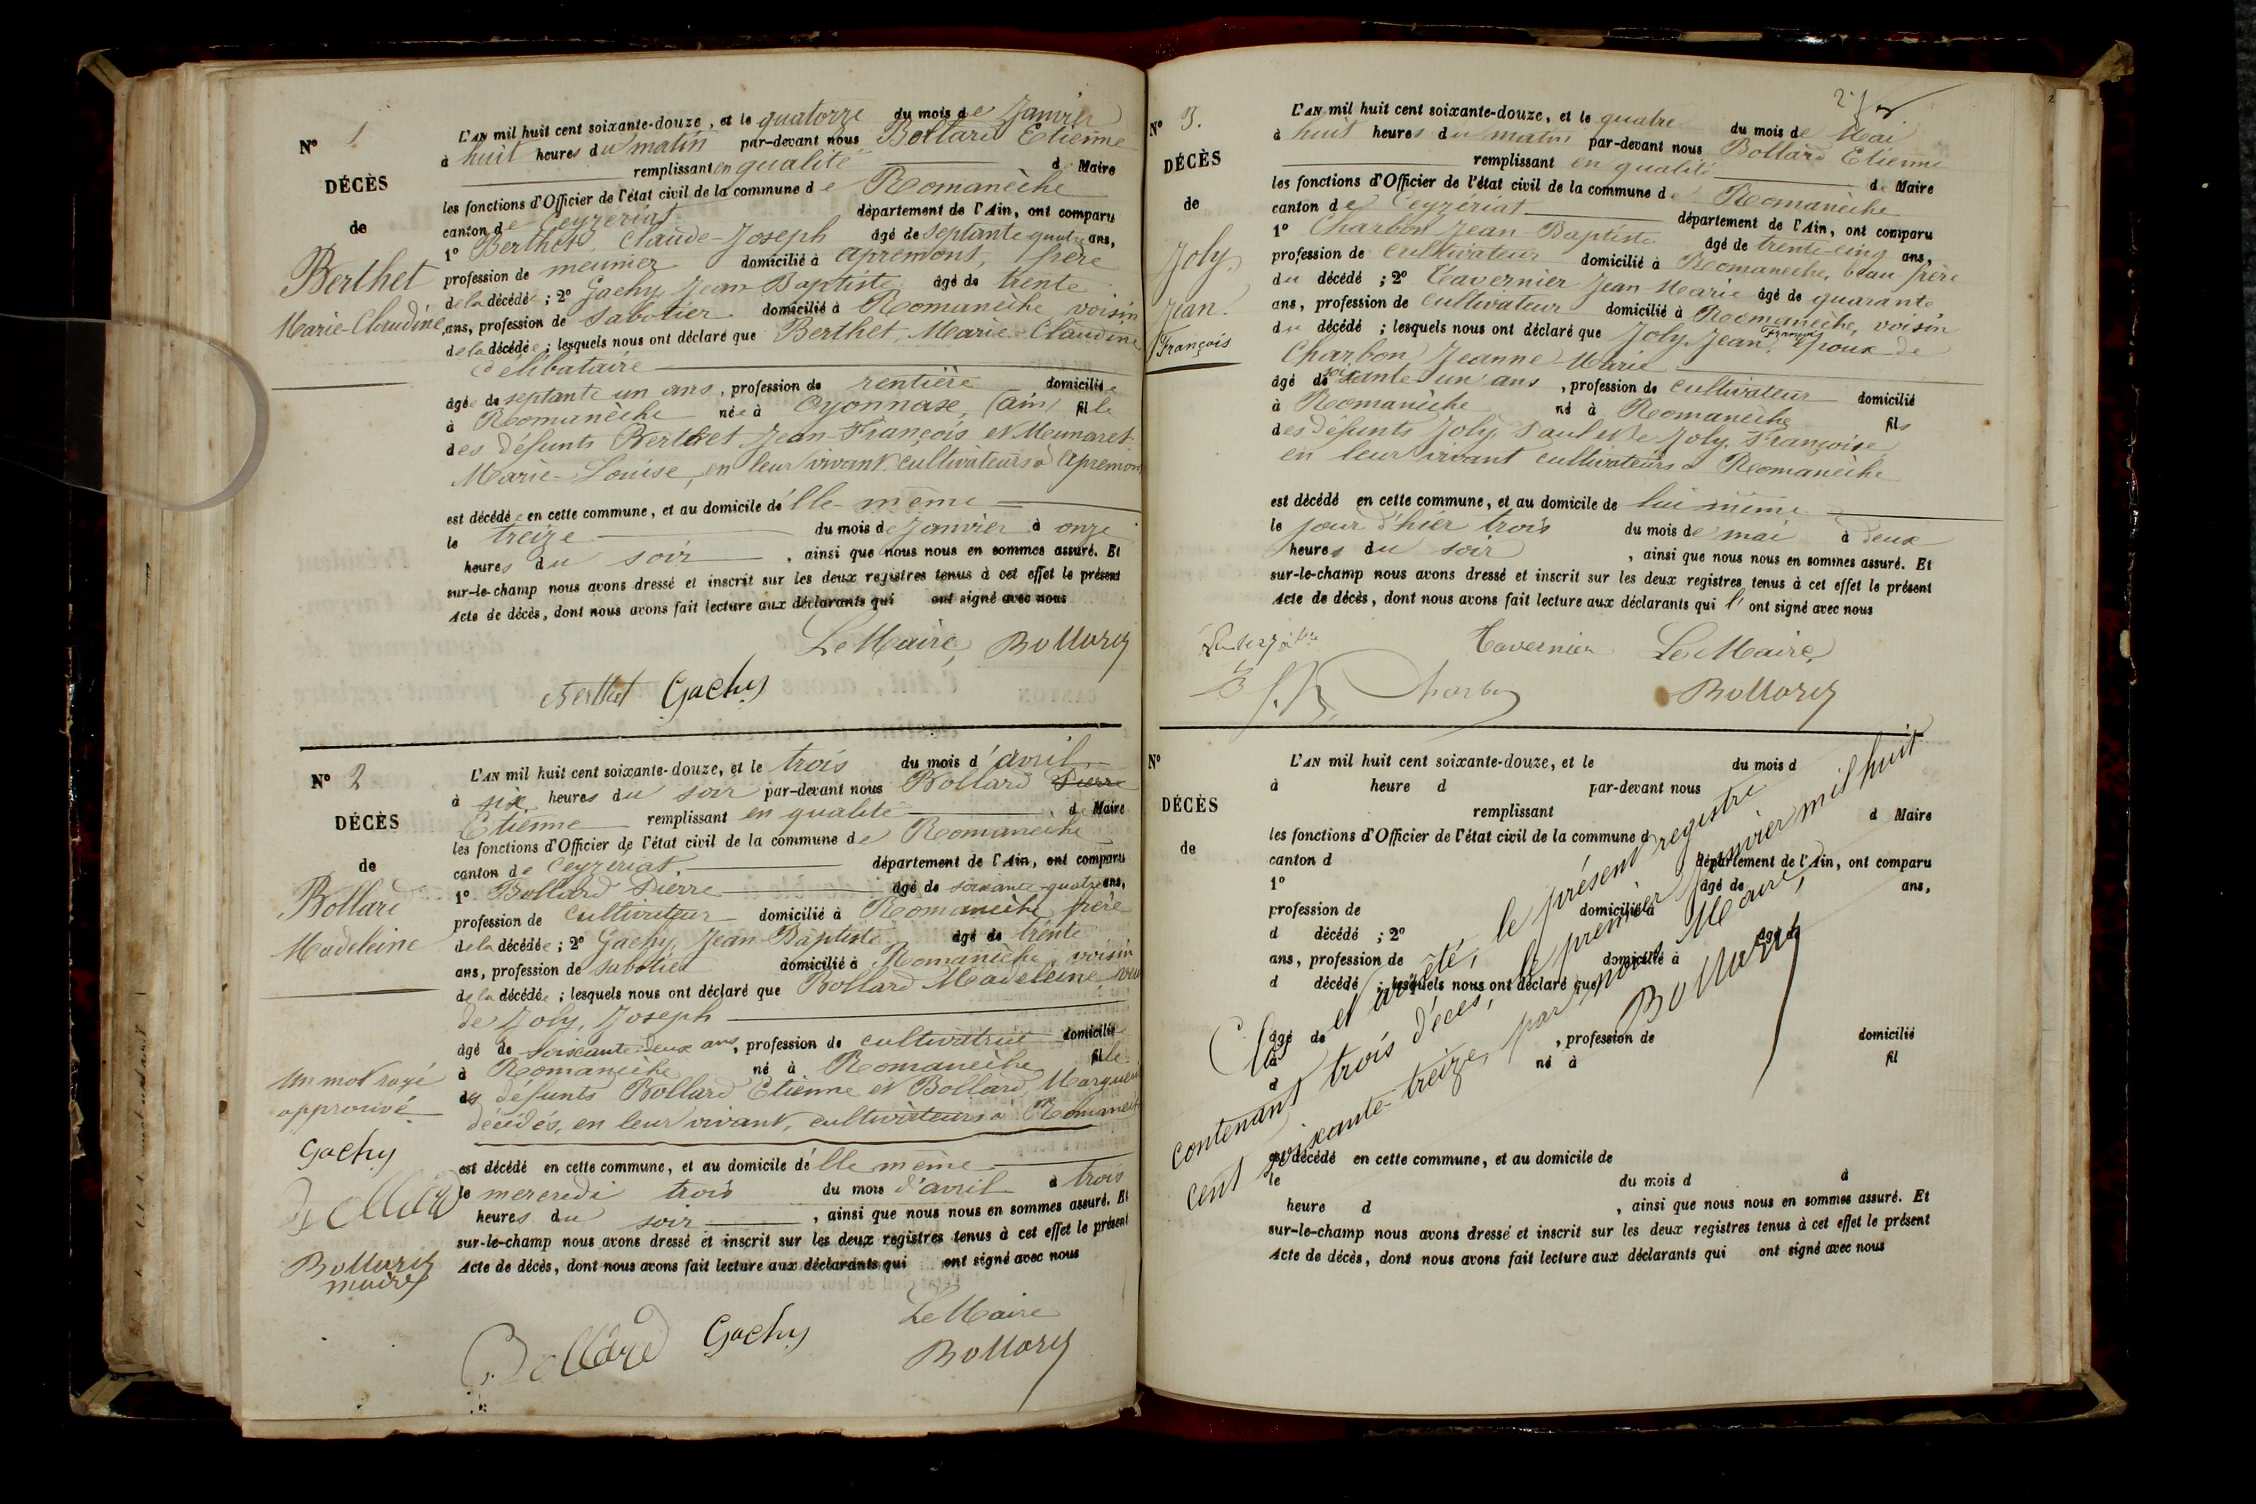 N° 1
DÉCÈS
de
Berthet
Marie-Claudine
L'AN mil huit cent soixante-douze, et le quatorze du mois de Janvier
à huit heures du matin par-devant nous Bollard Etienne
remplissant en qualité de Maire
les fonctions d'Officier de l'état civil de la commune de Romanèche
canton de Ceyzériat département de l'Ain, ont comparu
1° Berthet Claude-Joseph âgé de septante quatre ans,
profession de meunier domicilié à apremont, frère
de la décédée ; 2° Gachy Jean-Baptiste âgé de trente
ans, profession de sabotier domicilié à Romanèche voisin
de la décédée ; lesquels nous ont déclaré que Berthet, Marie-Claudine
célibataire
âgée de septante un ans, profession de rentière domiciliée
à Romanèche née à Oyonnax, (ain) fille
des défunts Berthet Jean-François et Meunaret
Marie-Louise, en leur vivant cultivateurs à apremont
est décédée en cette commune, et au domicile d'elle-même
le treize du mois de Janvier à onze
heures du soir, ainsi que nous nous en sommes assuré. Et
sur-le-champ nous avons dressé et inscrit sur les deux registres tenus à cet effet le présent
Acte de décès, dont nous avons fait lecture aux déclarants qui ont signé avec nous
Le Maire, Bollard
Berthet Gachy
N° 2
DÉCÈS
de
Bollard
Madeleine
L'AN mil huit cent soixante-douze, et le trois du mois d'avril
à six heures du soir par-devant nous Bollard Pierre
Etienne remplissant en qualité de Maire
les fonctions d'Officier de l'état civil de la commune de Romanèche
canton de Ceyzeriat département de l'Ain, ont comparu
1° Bollard Pierre âgé de soixante-quatre ans,
profession de cultivateur domicilié à Romanèche frère
de la décédée ; 2° Gachy, Jean-Baptiste âgé de trente
ans, profession de sabotier domicilié à Romanèche, voisin
de la décédée ; lesquels nous ont déclaré que Bollard Madeleine
de Joly, Joseph
âgé de soixante-deux ans, profession de cultivatrice domiciliée
à Romanèche né à Romanèche fille
des défunts Bollard Etienne et Bollard
décédés, en leur vivant, cultivateurs à Romanèche
est décédé en cette commune, et au domicile d'elle même
le mercredi trois du mois d'avril à trois
heures du soir, ainsi que nous nous en sommes assuré. Et
sur-le-champ nous avons dressé et inscrit sur les deux registres tenus à cet effet le présent
Acte de décès, dont nous avons fait lecture aux déclarants qui ont signé avec nous
un mot rayé
approuvé
Gachy
Bollard
Bollard
maire
Le Maire
Bollard Gachy Bollard
N° 3.
DÉCÈS
de
Joly,
Jean.
François
L'AN mil huit cent soixante-douze, et le quatre du mois de Mai
à huit heures du matin par-devant nous Bollard Etienne
remplissant en qualité de Maire
les fonctions d'Officier de l'état civil de la commune de Romanèche
canton de Ceyzériat département de l'Ain, ont comparu
1° Charbon Jean-Baptiste âgé de trente-cinq ans,
profession de cultivateur domicilié à Romanèche, beau frère
du décédé ; 2° Tavernier Jean-Marie âgé de quarante
ans, profession de cultivateur domicilié à Romanèche, voisin
du décédé ; lesquels nous ont déclaré que Joly, Jean, François époux de
Charbon Jeanne Marie
âgé de soixante un ans, profession de cultivateur domicilié
à Romanèche né à Romanèche fils
des défunts Joly Paul et de Joly Françoise
en leur vivant cultivateurs à Romanèche
est décédé en cette commune, et au domicile de lui même
le jour d'hier trois du mois de mai à deux
heures du soir, ainsi que nous nous en sommes assuré. Et
sur-le-champ nous avons dressé et inscrit sur les deux registres tenus à cet effet le présent
Acte de décès, dont nous avons fait lecture aux déclarants qui l'ont signé avec nous
Tavernier Le Maire,
Charbon Bollard
N°
DÉCÈS
de
L'AN mil huit cent soixante-douze, et le du mois d
à heure d par-devant nous
remplissant d Maire
les fonctions d'Officier de l'état civil de la commune d
canton d département de l'Ain, ont comparu
1° âgé de ans,
profession de domicilié à
d décédé ; 2° âgé de
ans, profession de domicilié à
d décédé ; lesquels nous ont déclaré que
âgé de , profession de domicilié
à né à fil
d
est décédé en cette commune, et au domicile de
le du mois d à
heure d , ainsi que nous nous en sommes assuré. Et
sur-le-champ nous avons dressé et inscrit sur les deux registres tenus à cet effet le présent
Acte de décès, dont nous avons fait lecture aux déclarants qui ont signé avec nous
Clos et arrêté, le présent registre
contenant trois décès, le premier Janvier mil huit
cent soixante-treize, par nous Maire,
Bollard